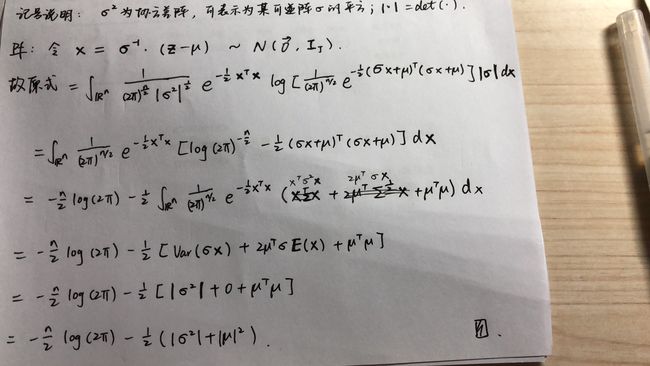 记号说明: σ² 为协方差阵, 可表示为某可逆阵 σ 的平方; |·| = det(·).
解: 令 x = σ⁻¹·(z-μ) ~ N(0⃗, I_J).
故原式 = ∫_{ℝⁿ} 1/((2π)^{n/2} |σ²|^{1/2}) e^{-½xᵀx} log[1/(2π)^{n/2} e^{-½(σx+μ)ᵀ(σx+μ)}] |σ| dx
= ∫_{ℝⁿ} 1/(2π)^{n/2} e^{-½xᵀx} [log(2π)^{-n/2} - ½(σx+μ)ᵀ(σx+μ)] dx
= -n/2 log(2π) - ½ ∫_{ℝⁿ} 1/(2π)^{n/2} e^{-½xᵀx} (xᵀσ²x + 2μᵀσx + μᵀμ) dx
= -n/2 log(2π) - ½ [Var(σx) + 2μᵀσE(x) + μᵀμ]
= -n/2 log(2π) - ½ [|σ²| + 0 + μᵀμ]
= -n/2 log(2π) - ½ (|σ²| + |μ|²).